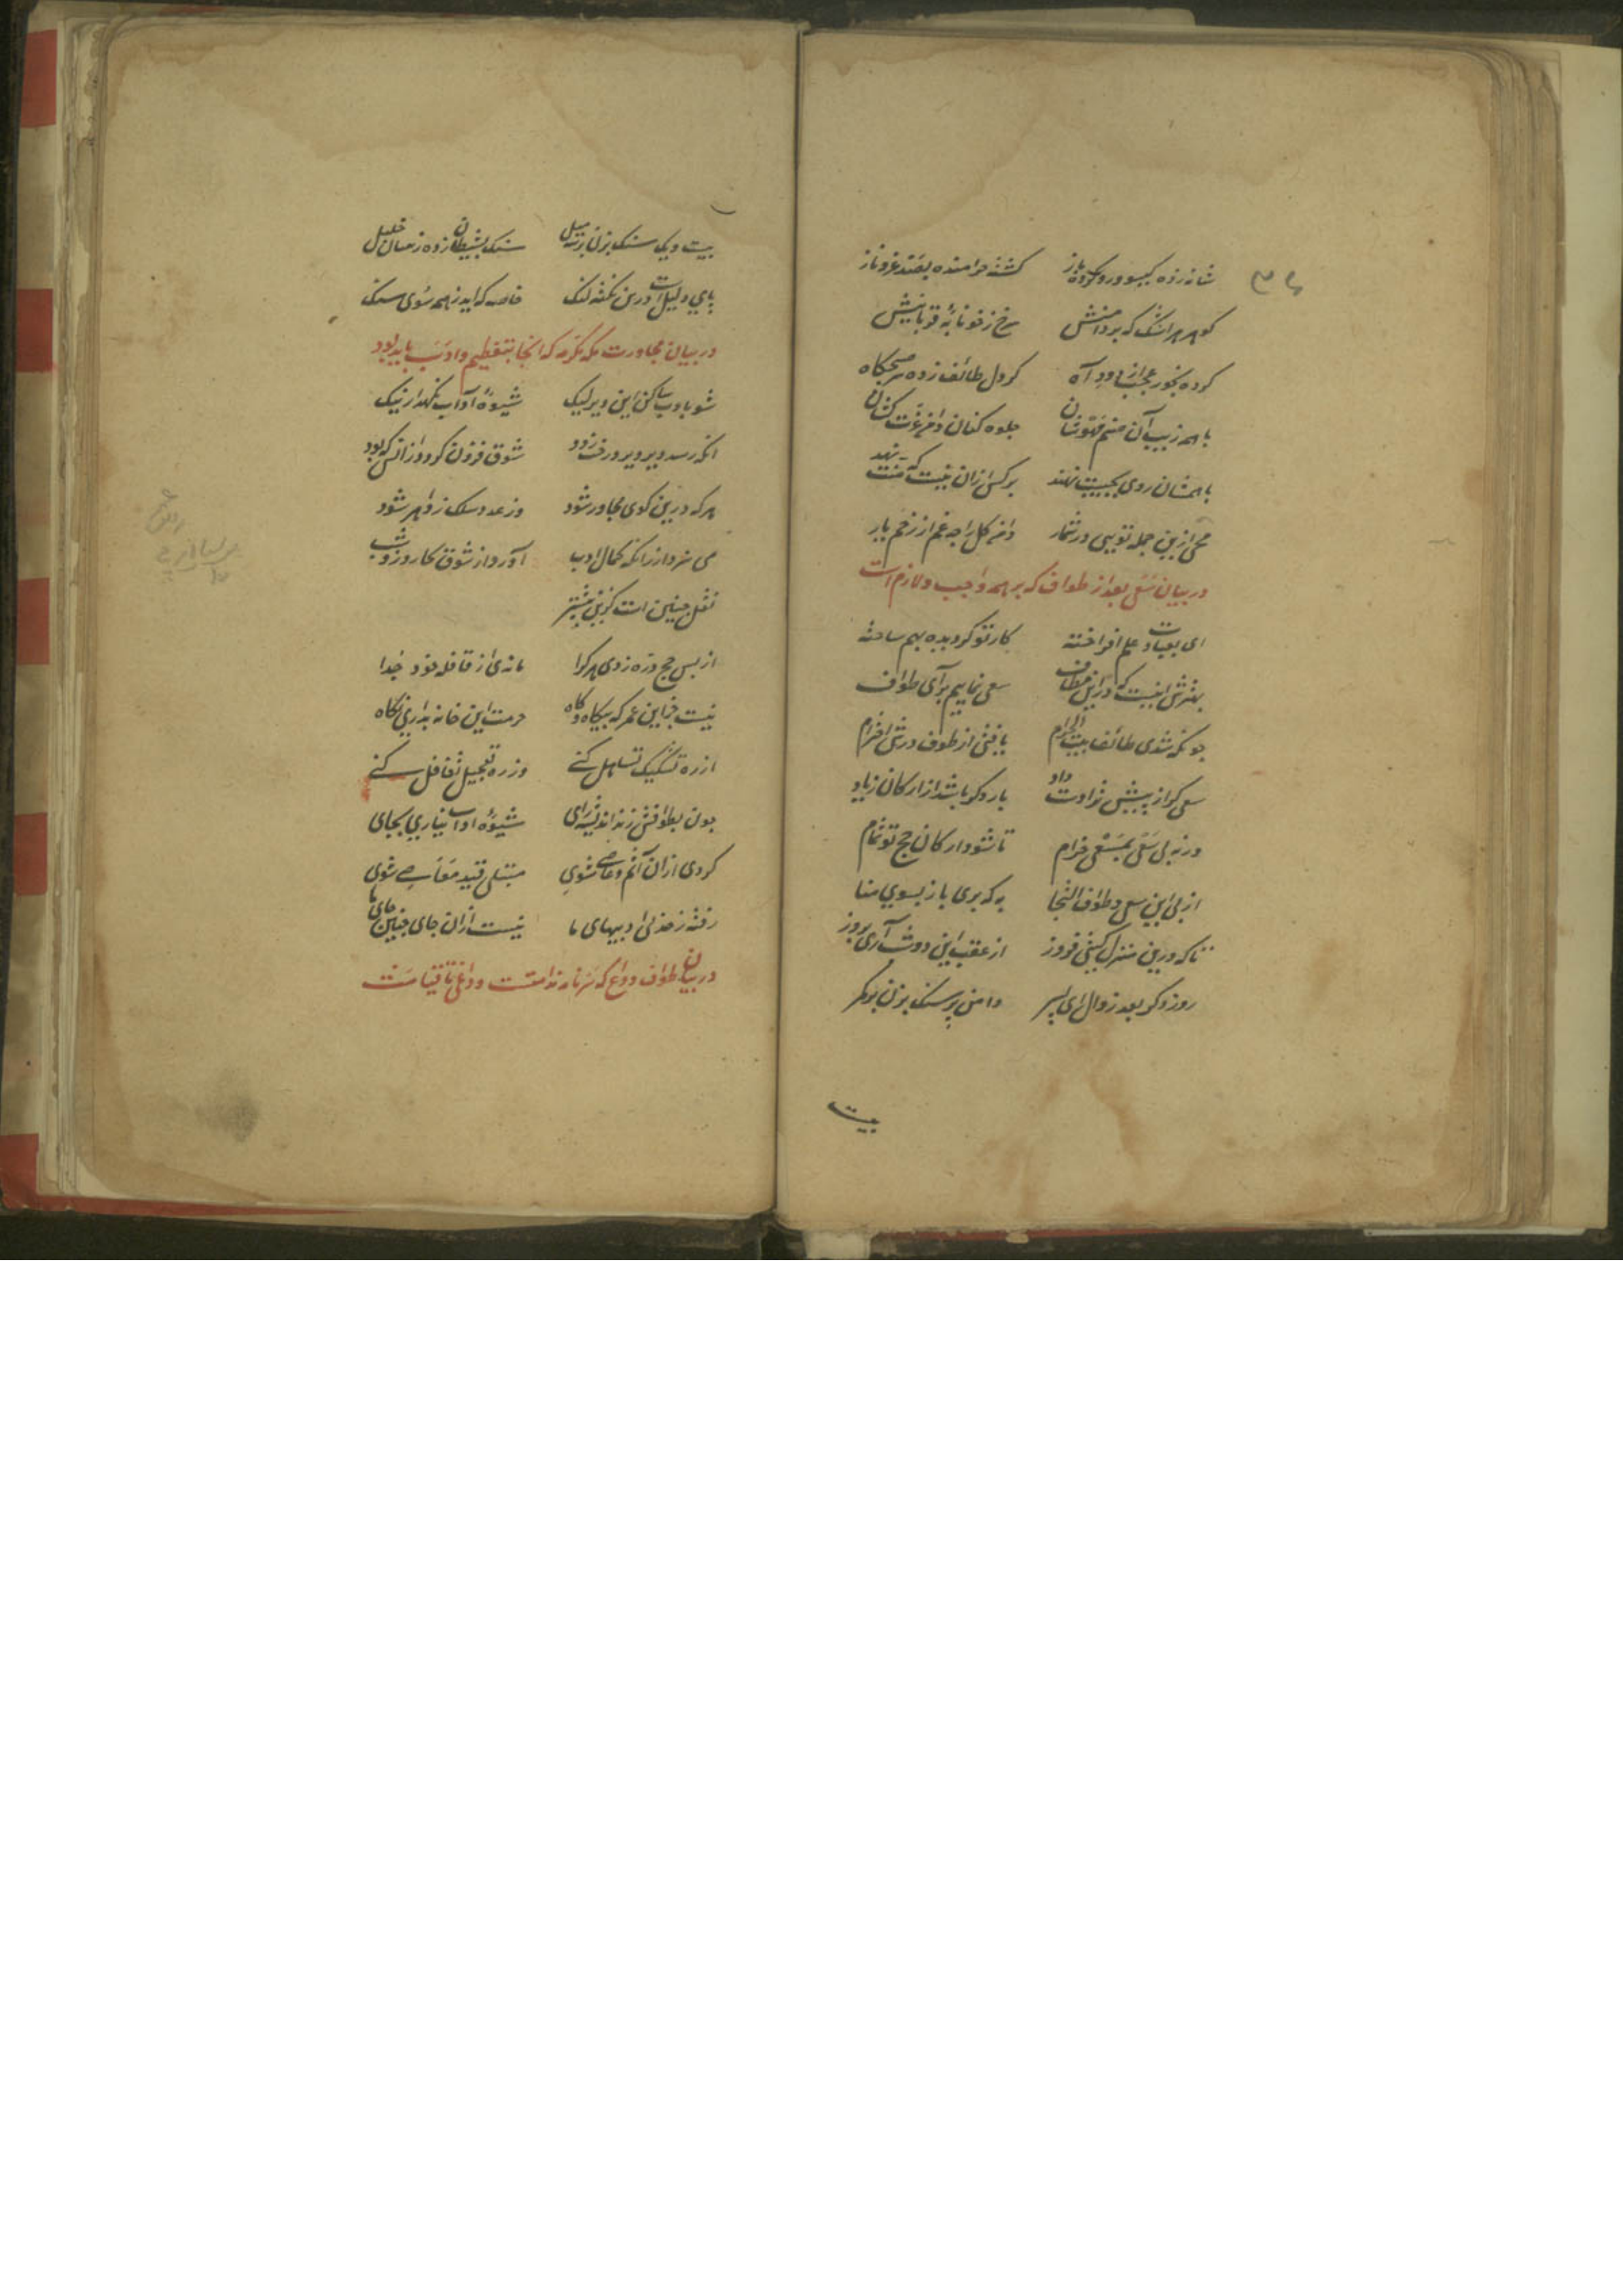 شانه زده کیسو و رو کرده باز کشته خرامنده بصد عز و ناز
کوهر هر اشک که بر دامنش رخ ز خونابهٔ قربانیش
کرده بخور عجب از دود آه کز دل طائف زده هر صبحکاه
با همه زیب آن صنم مهوشان جلوه کنان دامن عزت کشان
با همشان روی بجیب نهند بر کس ازان نیست که منت نهد
محی ازین جمله تویی در شمار دامن کل را چه غم از زخم خار
در بیان سعی بعد از طواف که بر همه واجب و لازم است
ای بعبادت علم افراخته کار تو کردیده بهم ساخته
بهترش اینست که در این مطاف سعی نماییم برای طواف
چونکه شدی طائف بیت الحرام یافتی از طوف درش احترام
سعی کر از پیش ترا دست داد بار دکر باشد از ارکان زیاد
ورنه پی سعی بمسعی خرام تا شود ارکان حج تو تمام
از پی این سعی و طواف التجا به که بری باز بسوی منا
تا که درین منزل کیتی فروز از عقب این دو شب آری بروز
روز دکر بعد زوال ای پسر دامن پر سنک بزن بر کمر
بیت
بیست و یک سنک بزن بر سه میل سنک بشیطان زده زینسان خلیل
پای دلیل است درین نکته لنک خاصه که اید ز همه سوی سنک
در بیان مجاورت مکه مکرمه که انجا بتعظیم و ادب باید بود
شو بادب ساکن این دیر لیک شیوهٔ آداب نکهدار نیک
انکه رسد دیر و برد رخت زود شوق فزون کرد و ازانکس که بود
هر که درین کوی مجاور شود
می سزد از زانکه کمال ادب آورد از شوق بکار روز و شب
نقل چنین است کزین پیشتر
از پس حج دره زدی هر کرا مانده از قافله خود جدا
نیست جز این عمر که بیکاه و کاه حرمت این خانه بداری نکاه
از ره تشکیک تساهل کنی وز ره تعجیل تغافل کنی
چون بطوافش زند اندیشه رای شیوهٔ اداب نیاری بجای
کردی ازان آثم و عاصی شوی مبتلی قید معاصی شوی
رفته ز حد بی ادبیهای ما نیست ازان جای چنین جای ما
در بیان طواف وداع که